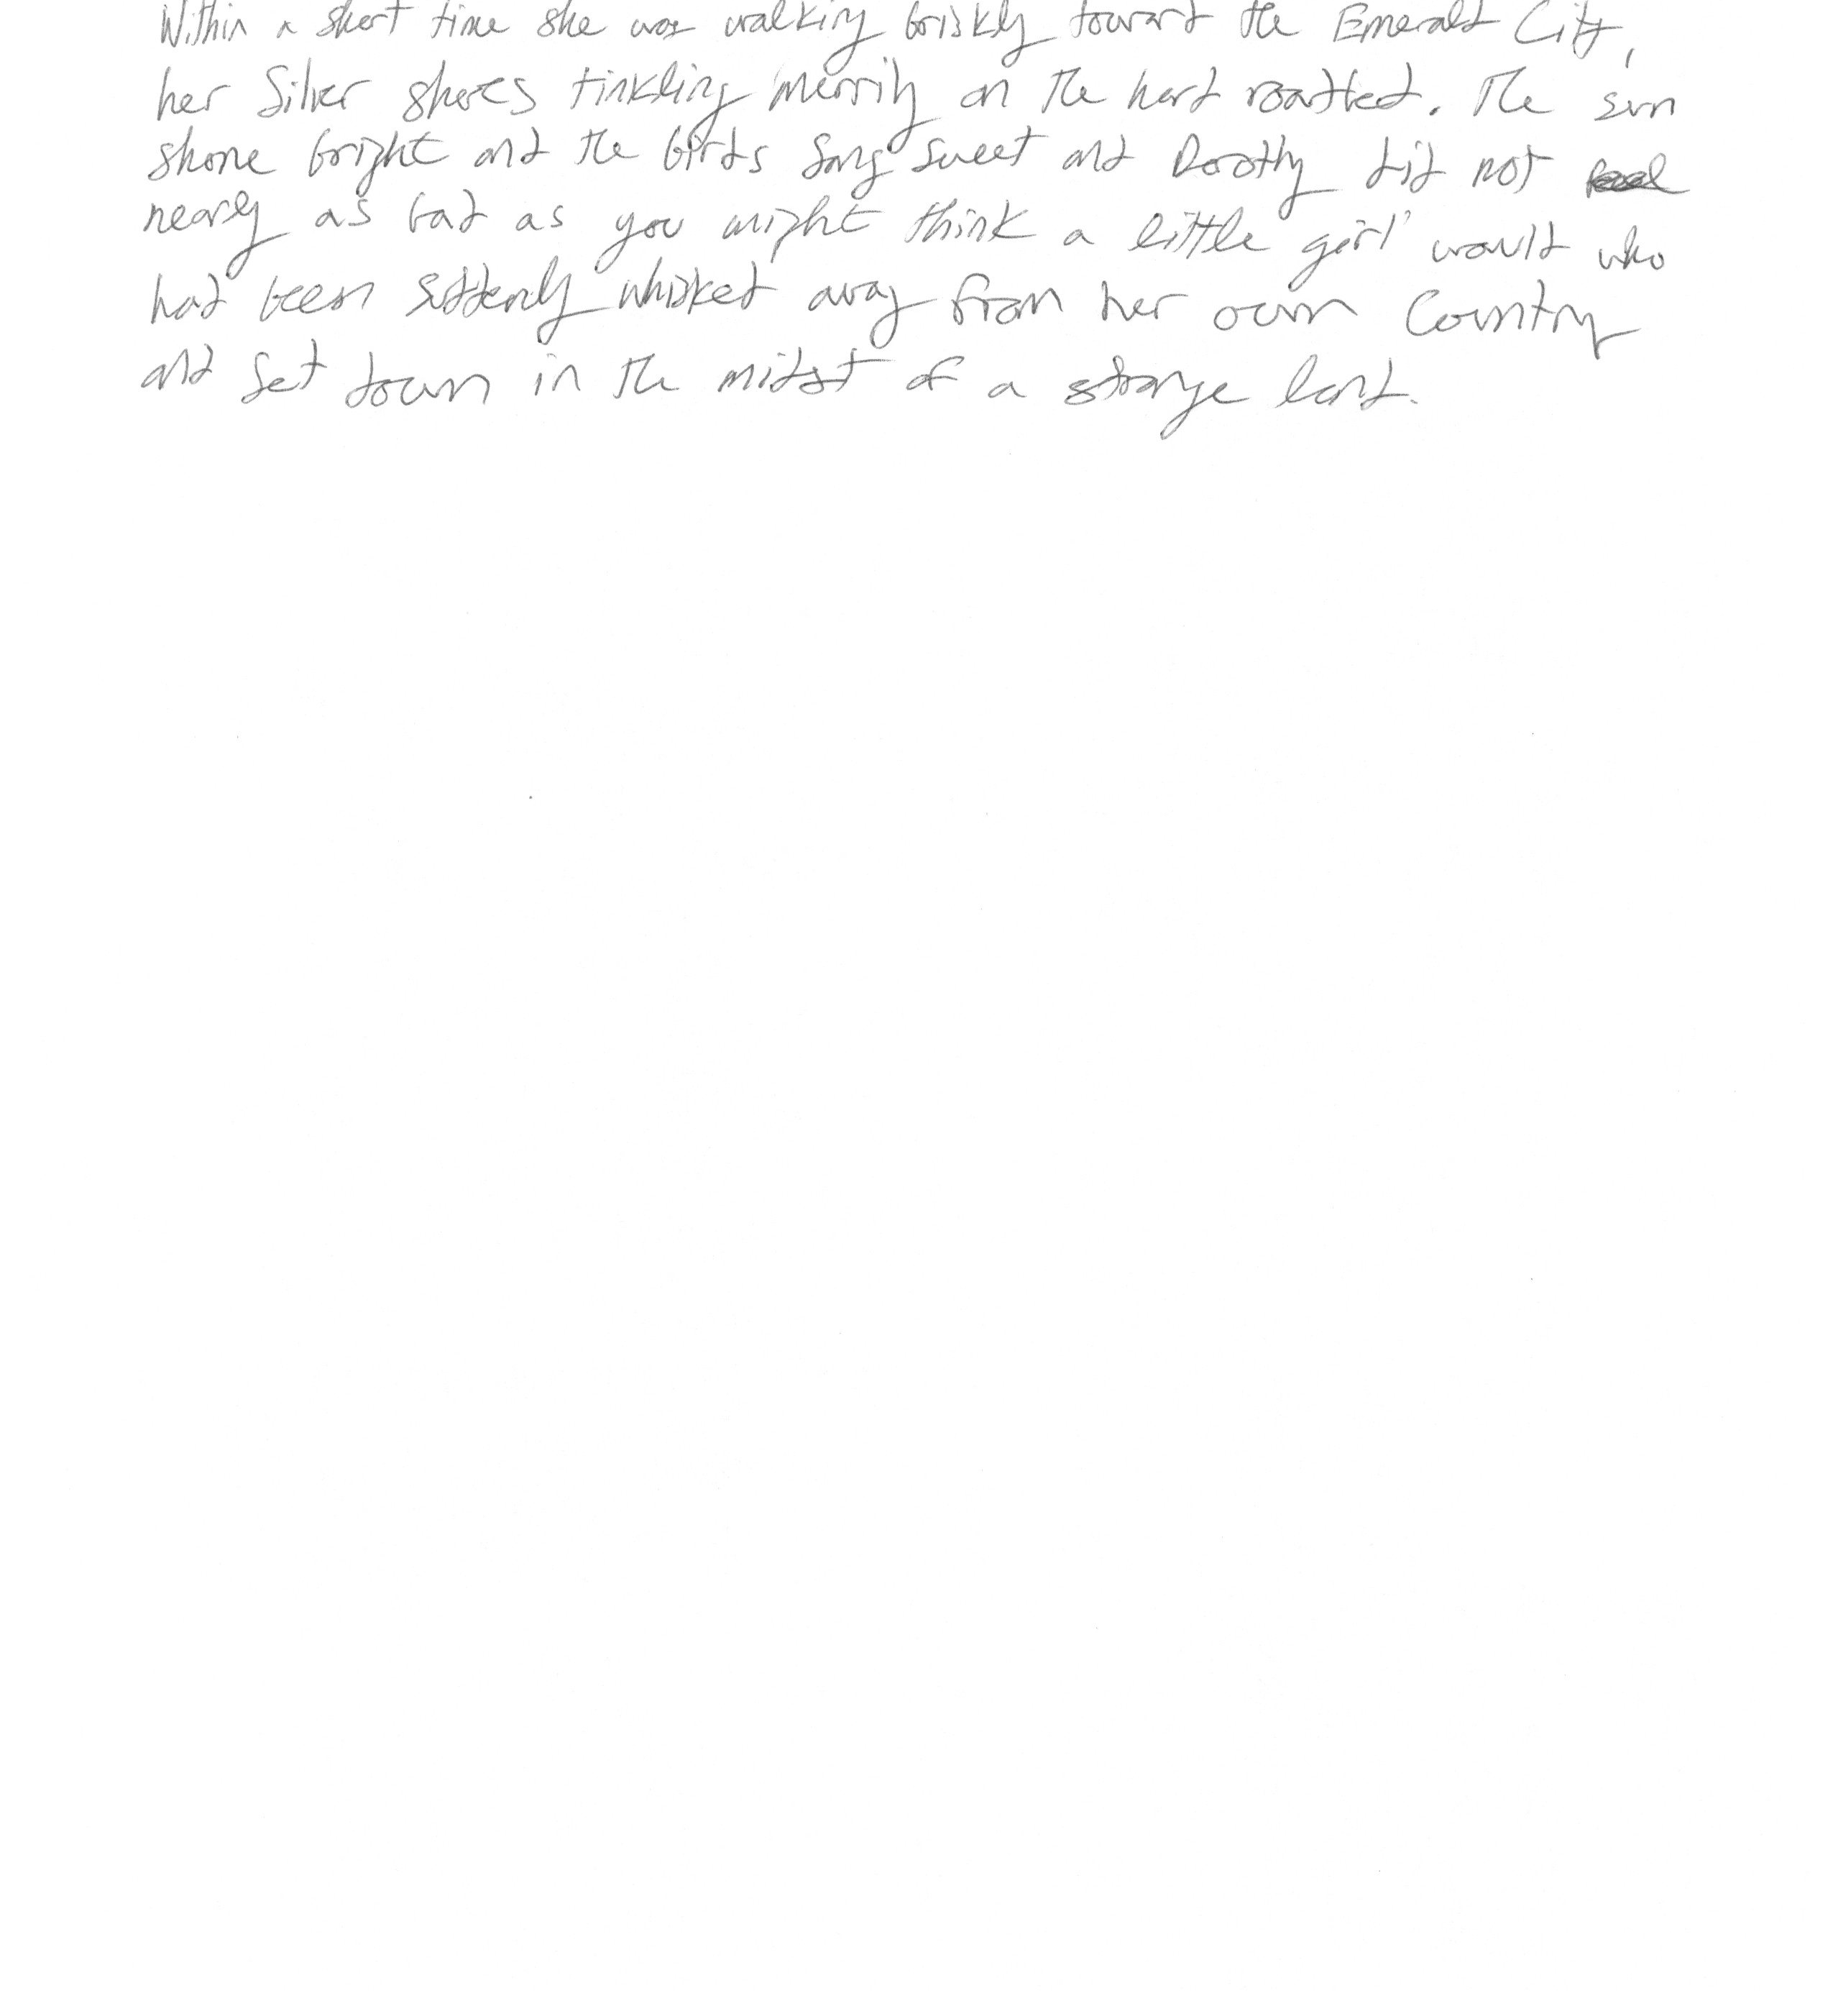 Within a short time she was walking briskly toward the Emerald City,
her Silver shoes tinkling merrily on the hard roadbed. The sun
shone bright and the birds sang sweet and Dorothy did not feel
nearly as bad as you might think a little girl would who
had been suddenly whisked away from her own Country
and set down in the midst of a strange land.